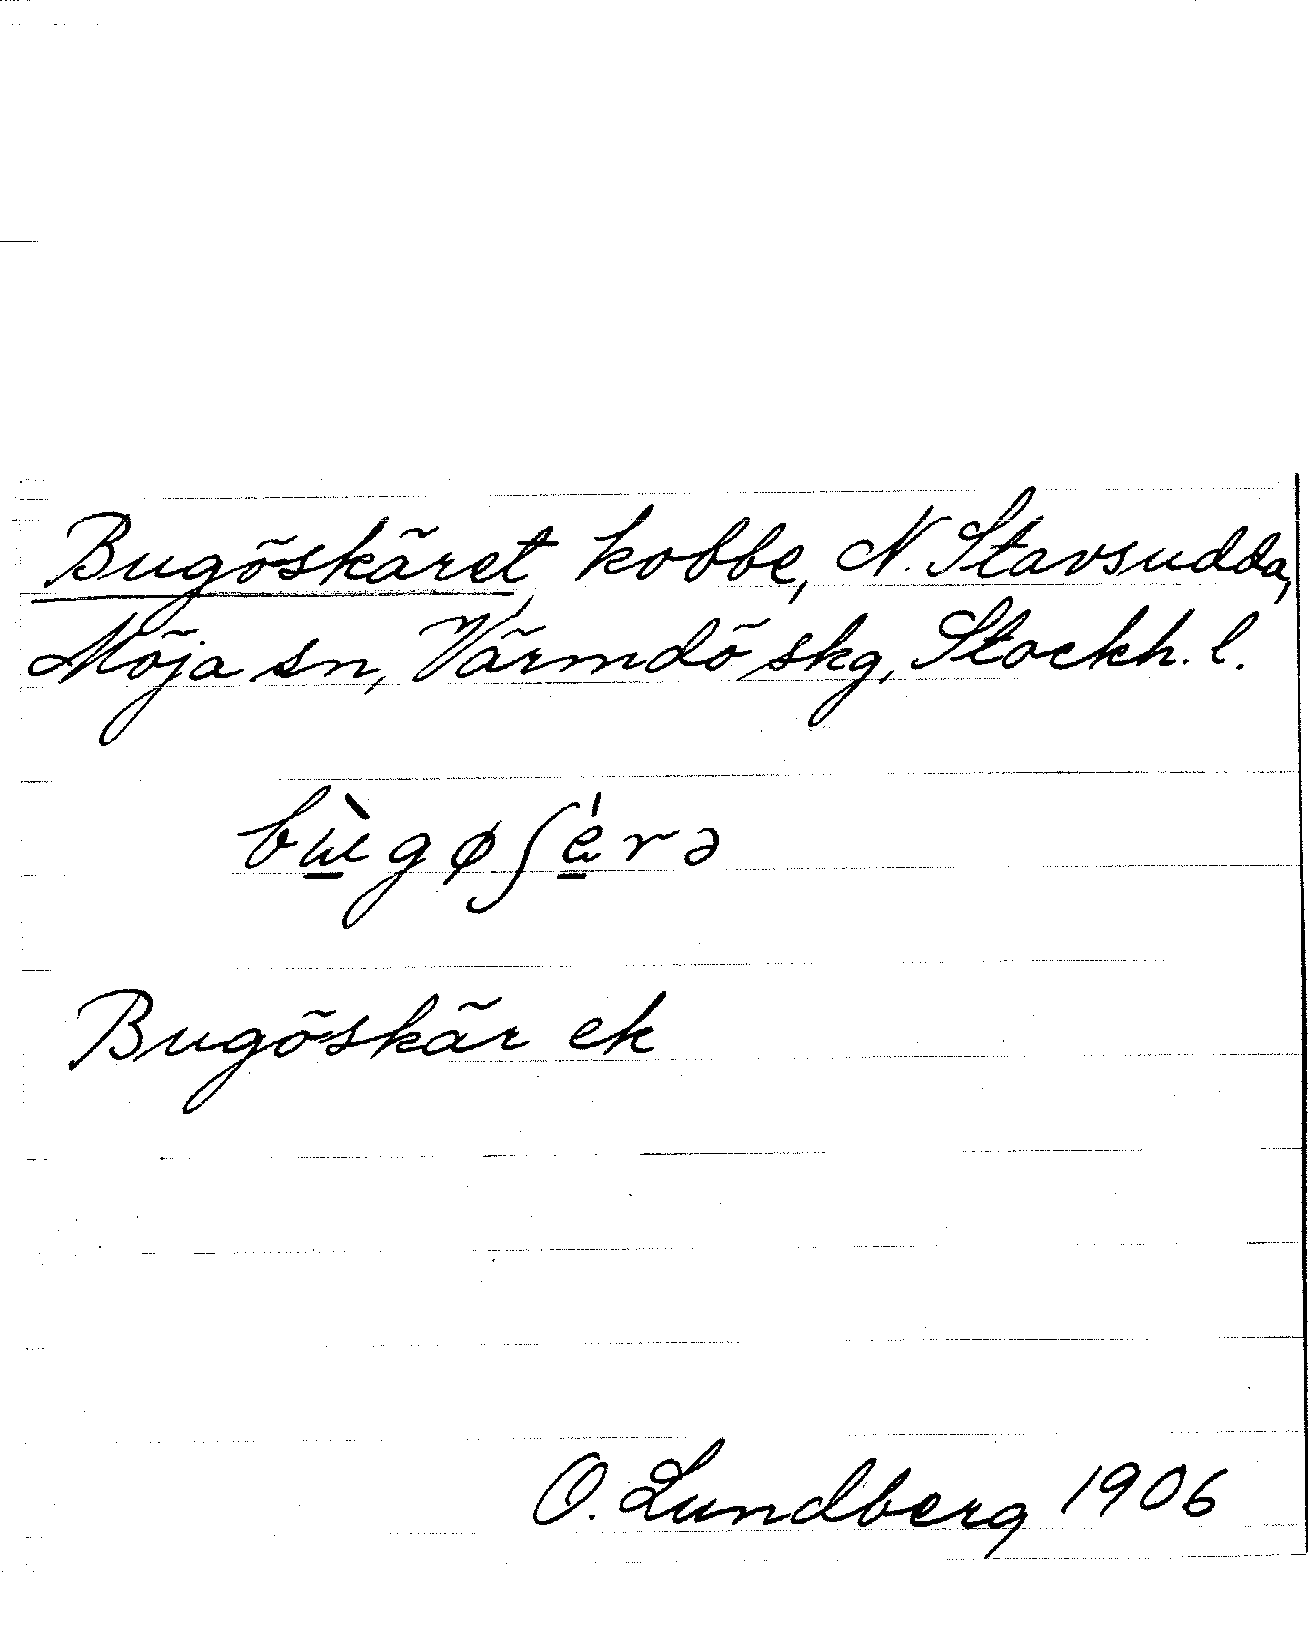 Bugöskäret kobbe, N. Stavsudda,
Möja sn, Värmdö skg, Stockh. l.
bɯ̀gøʃérə
Bugöskär ek
O. Lundberg 1906